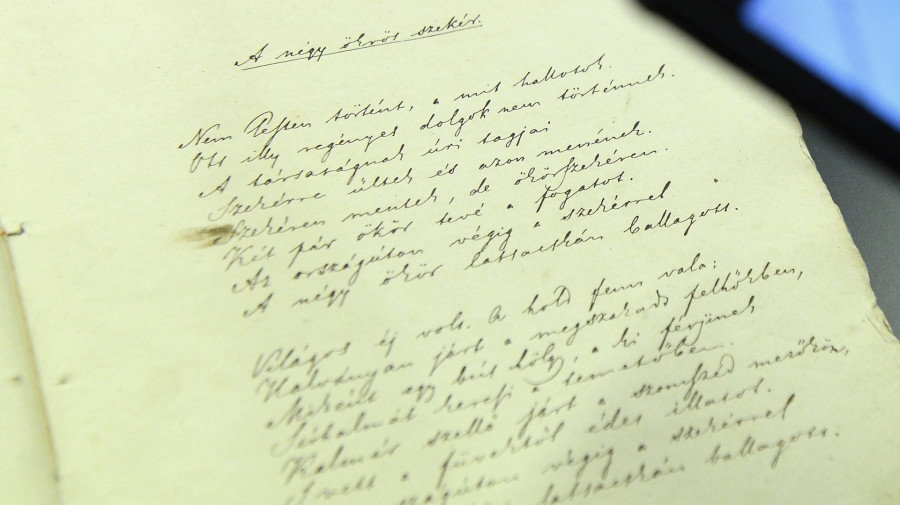 A négy ökrös szekér.
Nem Pesten történt, a mit hallotok.
Ott illy regényes dolgok nem történnek.
A társaságnak úri tagjai
Szekérre ültek és azon menének.
Szekéren mentek, de ökörszekéren.
Két pár ökör tevé a fogatot.
Az országúton végig a szekérrel
A négy ökör lassacskán ballagott.
Világos éj volt. A hold fenn vala;
Halványan járt a megszakadt felhőkben,
Miként egy bús hölgy, a ki férjinek
Sírhalmát keresi a temetőben.
Kalmár szellő járt a szomszéd mezőkön,
S vett a füvektől édes illatot.
országúton végig a szekérrel
lassacskán ballagott.